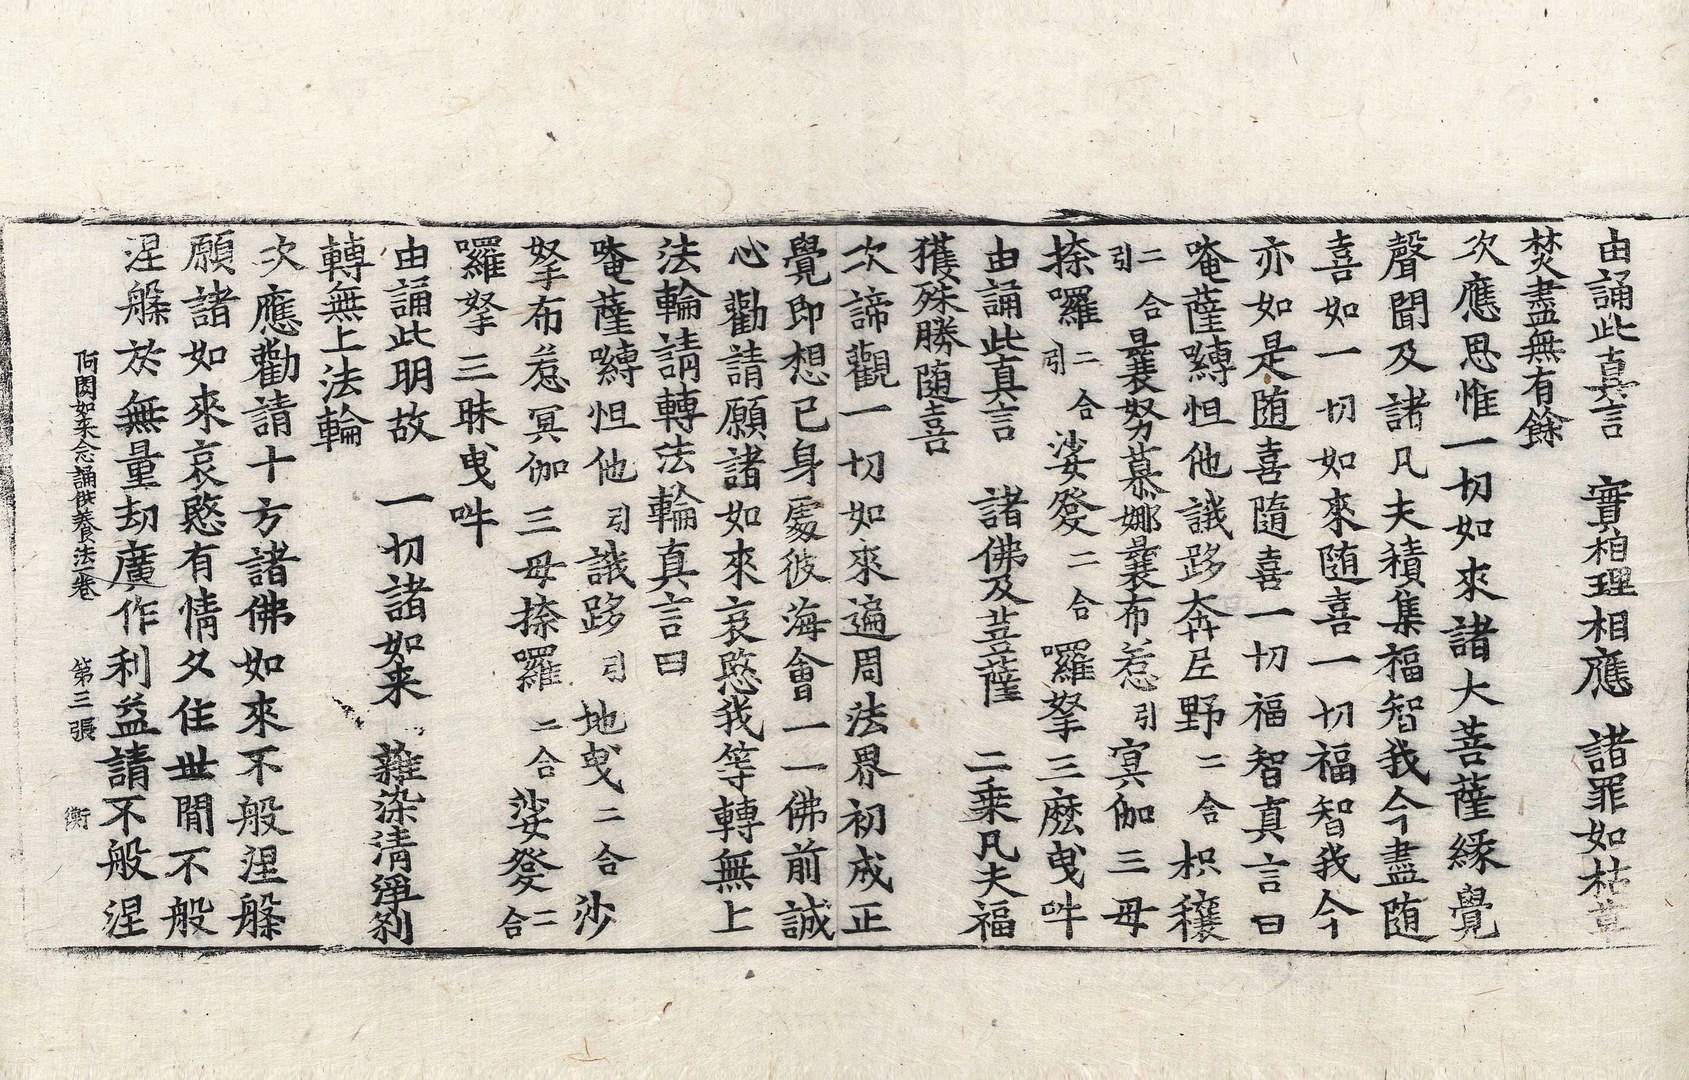 由誦此真言　實相理相應　諸罪如枯草
焚盡無有餘
次應思惟一切如來諸大菩薩緣覺
聲聞及諸凡夫積集福智我今盡随
喜如一切如來随喜一切福智我今
亦如是随喜隨喜一切福智真言曰
唵薩嚩怛他誐跢奔尼野二合枳穰
二合引曩努慕娜曩布惹引冥伽三母
捺囉二合引娑癹二合囉拏三麽曳吽
由誦此真言　諸佛及菩薩　二乗凡夫福
獲殊勝随喜
次諦觀一切如來遍周法界初成正
覺即想已身處彼海會一一佛前誠
心勸請願諸如來哀愍我等轉無上
法輪請轉法輪真言曰
唵薩嚩怛他引誐跢引地曳二合沙
拏布惹冥伽三母捺囉二合娑癹二合
囉拏三昧曳吽
由誦此明故　一切諸如来　雜染清淨刹
轉無上法輪
次應勸請十方諸佛如來不般涅槃
願諸如來哀愍有情久住世間不般
涅槃於無量劫廣作利益請不般涅
阿閦如来念誦供養法一卷　第三張　衡